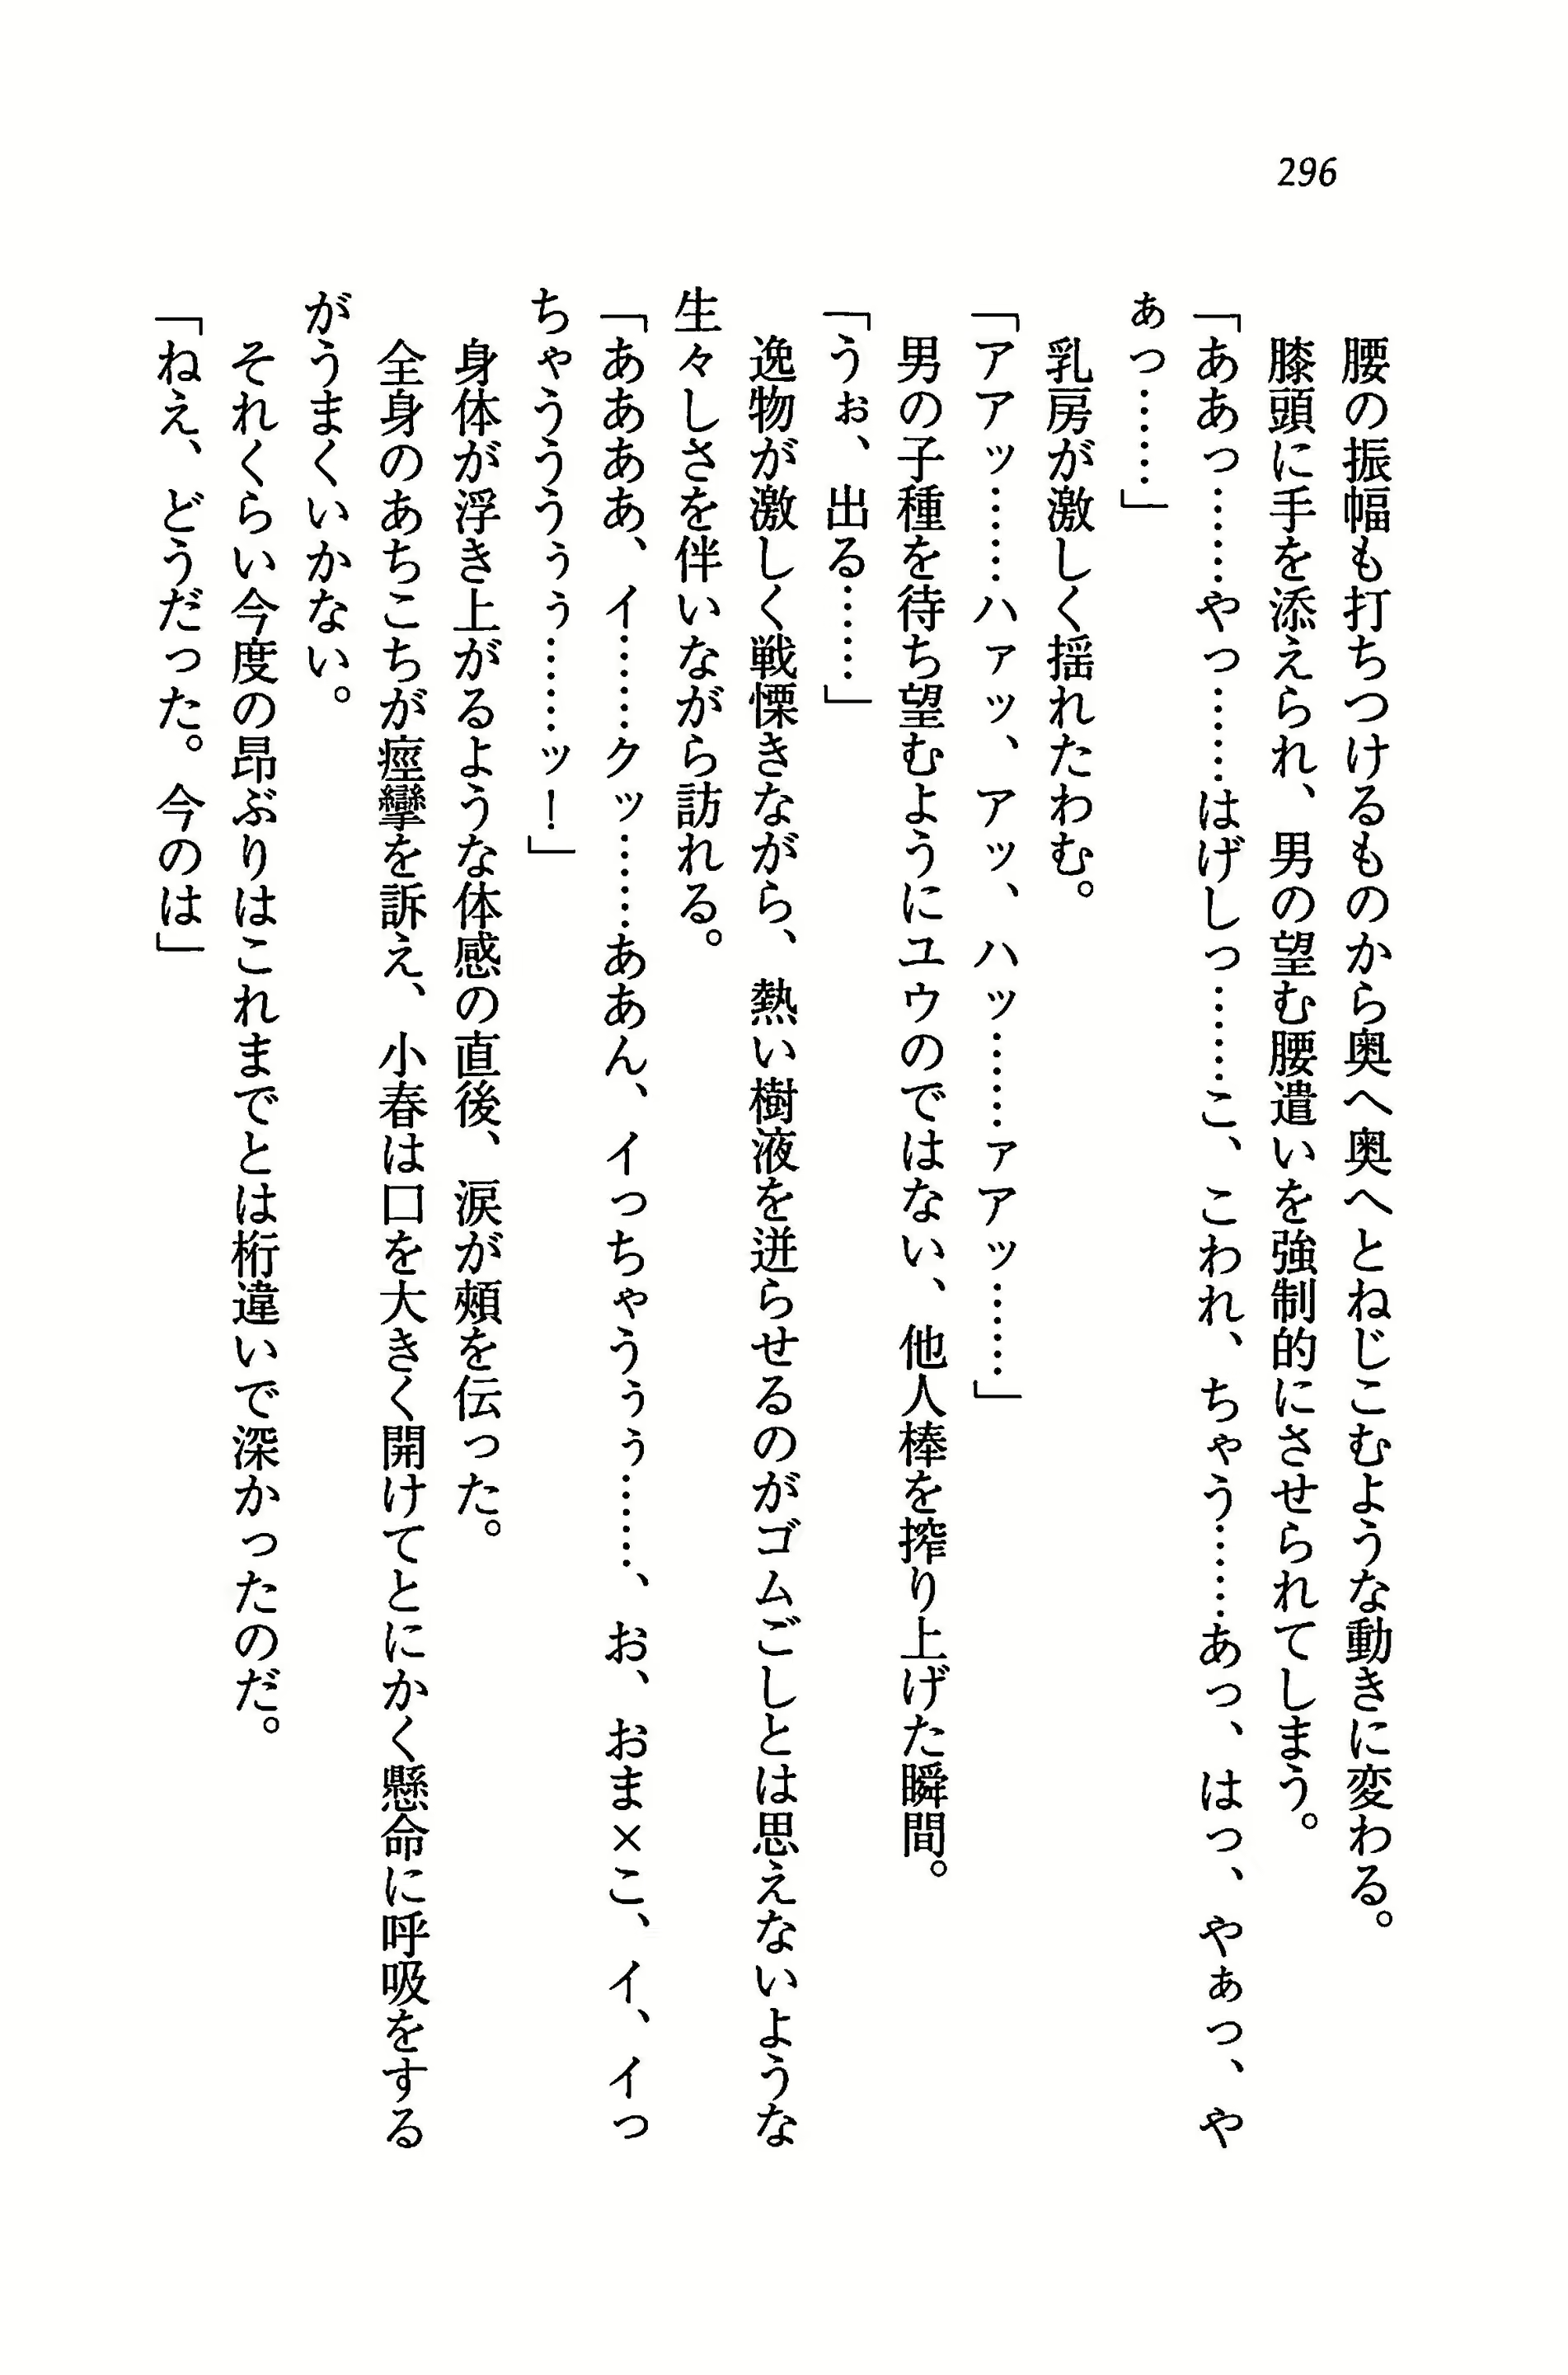 296
腰の振幅も打ちつけるものから奥へ奥へとねじこむような動きに変わる。
膝頭に手を添えられ、男の望む腰遣いを強制的にさせられてしまう。
「ああっ……やっ……はげしっ……こ、こわれ、ちゃう……あっ、はっ、やぁっ、や
ぁっ……」
乳房が激しく揺れたわむ。
「アアッ……ハァッ、アッ、ハッ……ァアッ……」
男の子種を待ち望むようにユウのではない、他人棒を搾り上げた瞬間。
「うぉ、出る……」
逸物が激しく戦慄きながら、熱い樹液を迸らせるのがゴムごしとは思えないような
生々しさを伴いながら訪れる。
「ああああ、イ……クッ……ああん、イっちゃうぅぅ……、お、おま×こ、イ、イっ
ちゃうううぅぅ……ッ！」
身体が浮き上がるような体感の直後、涙が頰を伝った。
全身のあちこちが痙攣を訴え、小春は口を大きく開けてとにかく懸命に呼吸をする
がうまくいかない。
それくらい今度の昂ぶりはこれまでとは桁違いで深かったのだ。
「ねえ、どうだった。今のは」